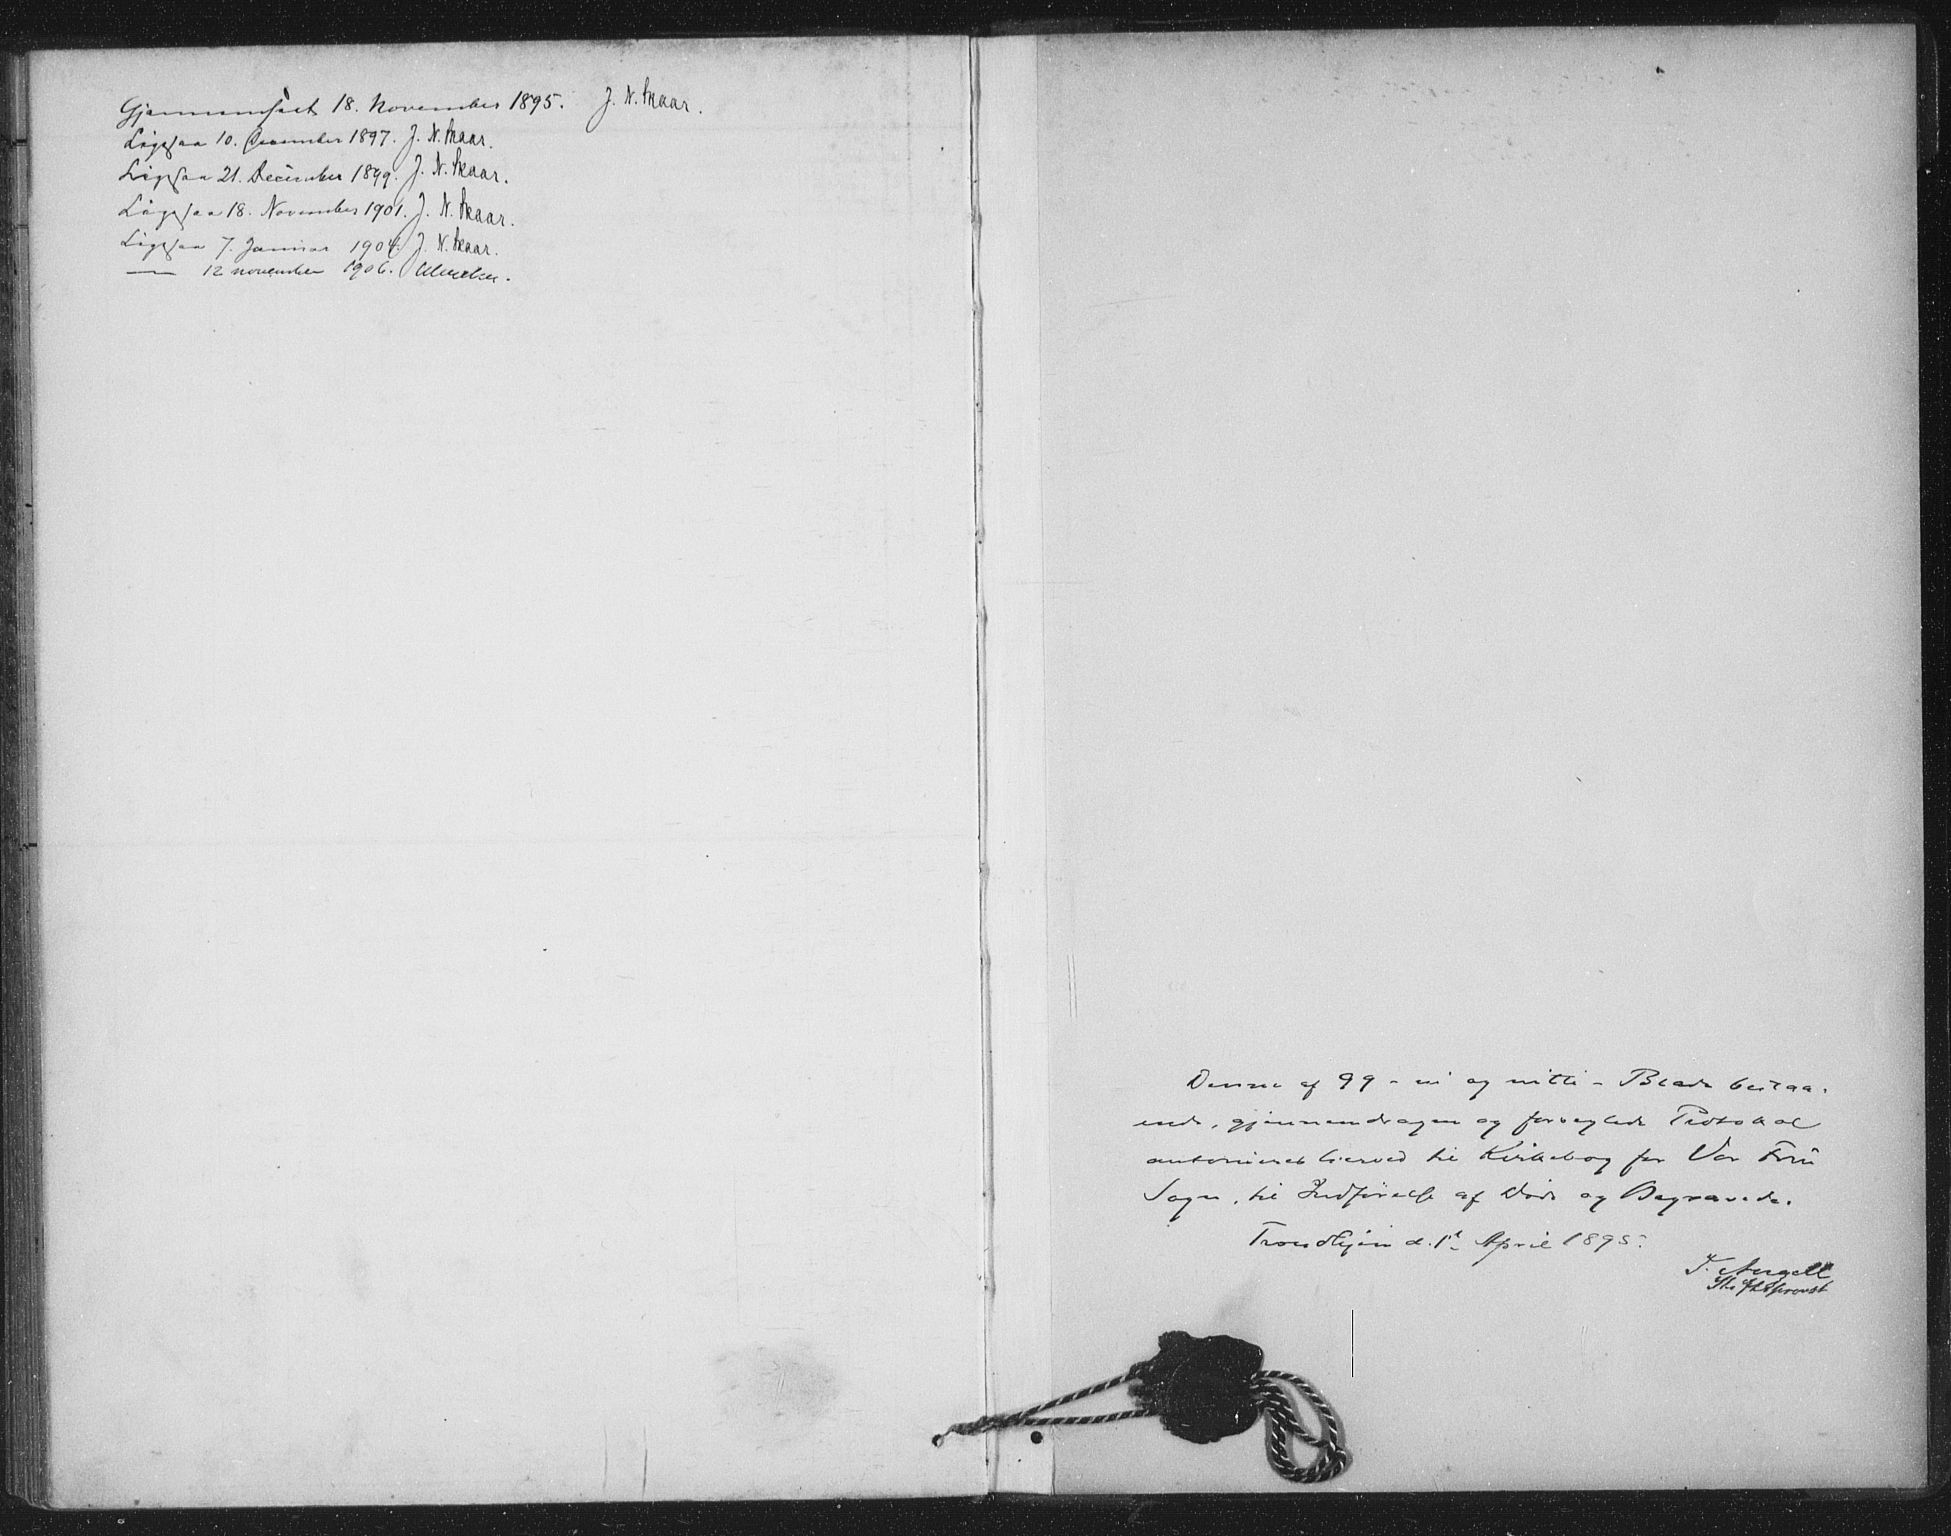 Gjennemseet 18. November 1895. J. N. Skaar.
Ligesaa 10. December 1897. J. N. Skaar.
Ligesaa 21. December 1899. J. N. Skaar.
Ligesaa 18. November 1901. J. N. Skaar.
Ligesaa 7. Januar 1904. J. N. Skaar.
— 12 november 1906.
Denne af 99 - ni og nitti - Blade bestaa-
ende, gjennemdragen og forseglede Protokol
autoriseres herved til Kirkebog for Vor Frue
Sogn, til Indførelse af Døde og Begravede.
Trondhjem d. 1ste April 1895.
J. Angell
Stiftsprovst